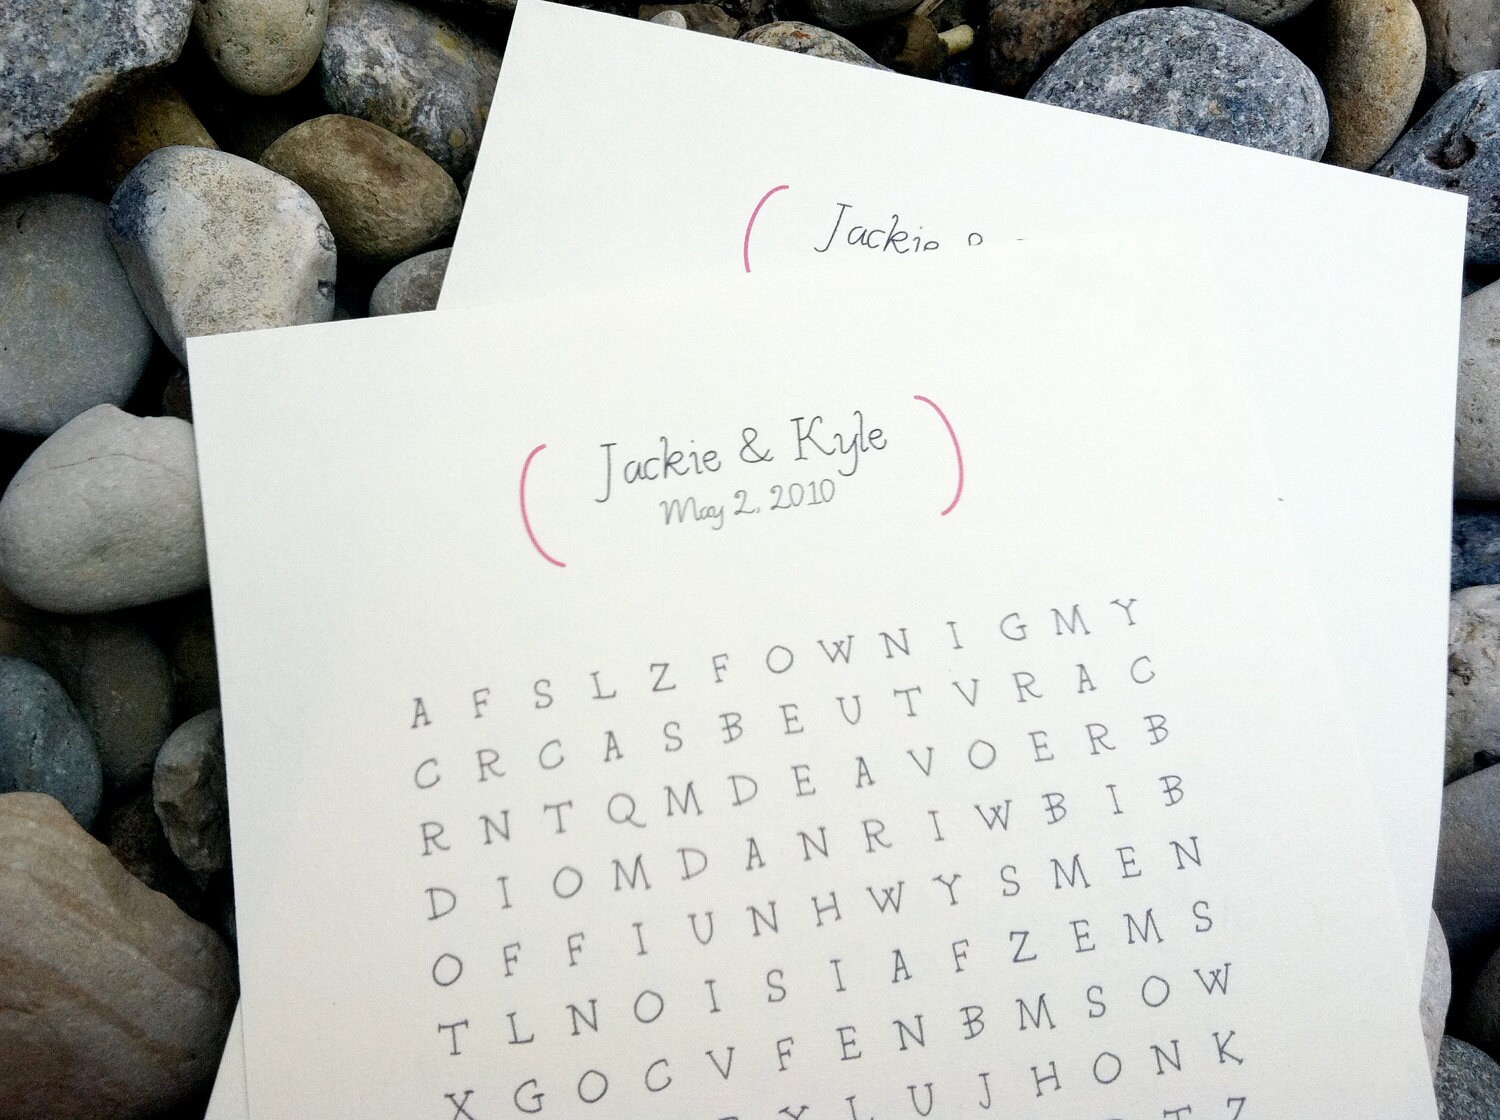 ( Jackie
( Jackie & Kyle )
May 2, 2010
A F S L Z F O W N I G M Y
C R C A S B E U T V R A C
R N T Q M D E A V O E R B
D I O M D A N R I W B I B
O F F I U N H W Y S M E N
T L N O I S I A F Z E M S
X G O C V F E N B M S O W
L U J H O N K